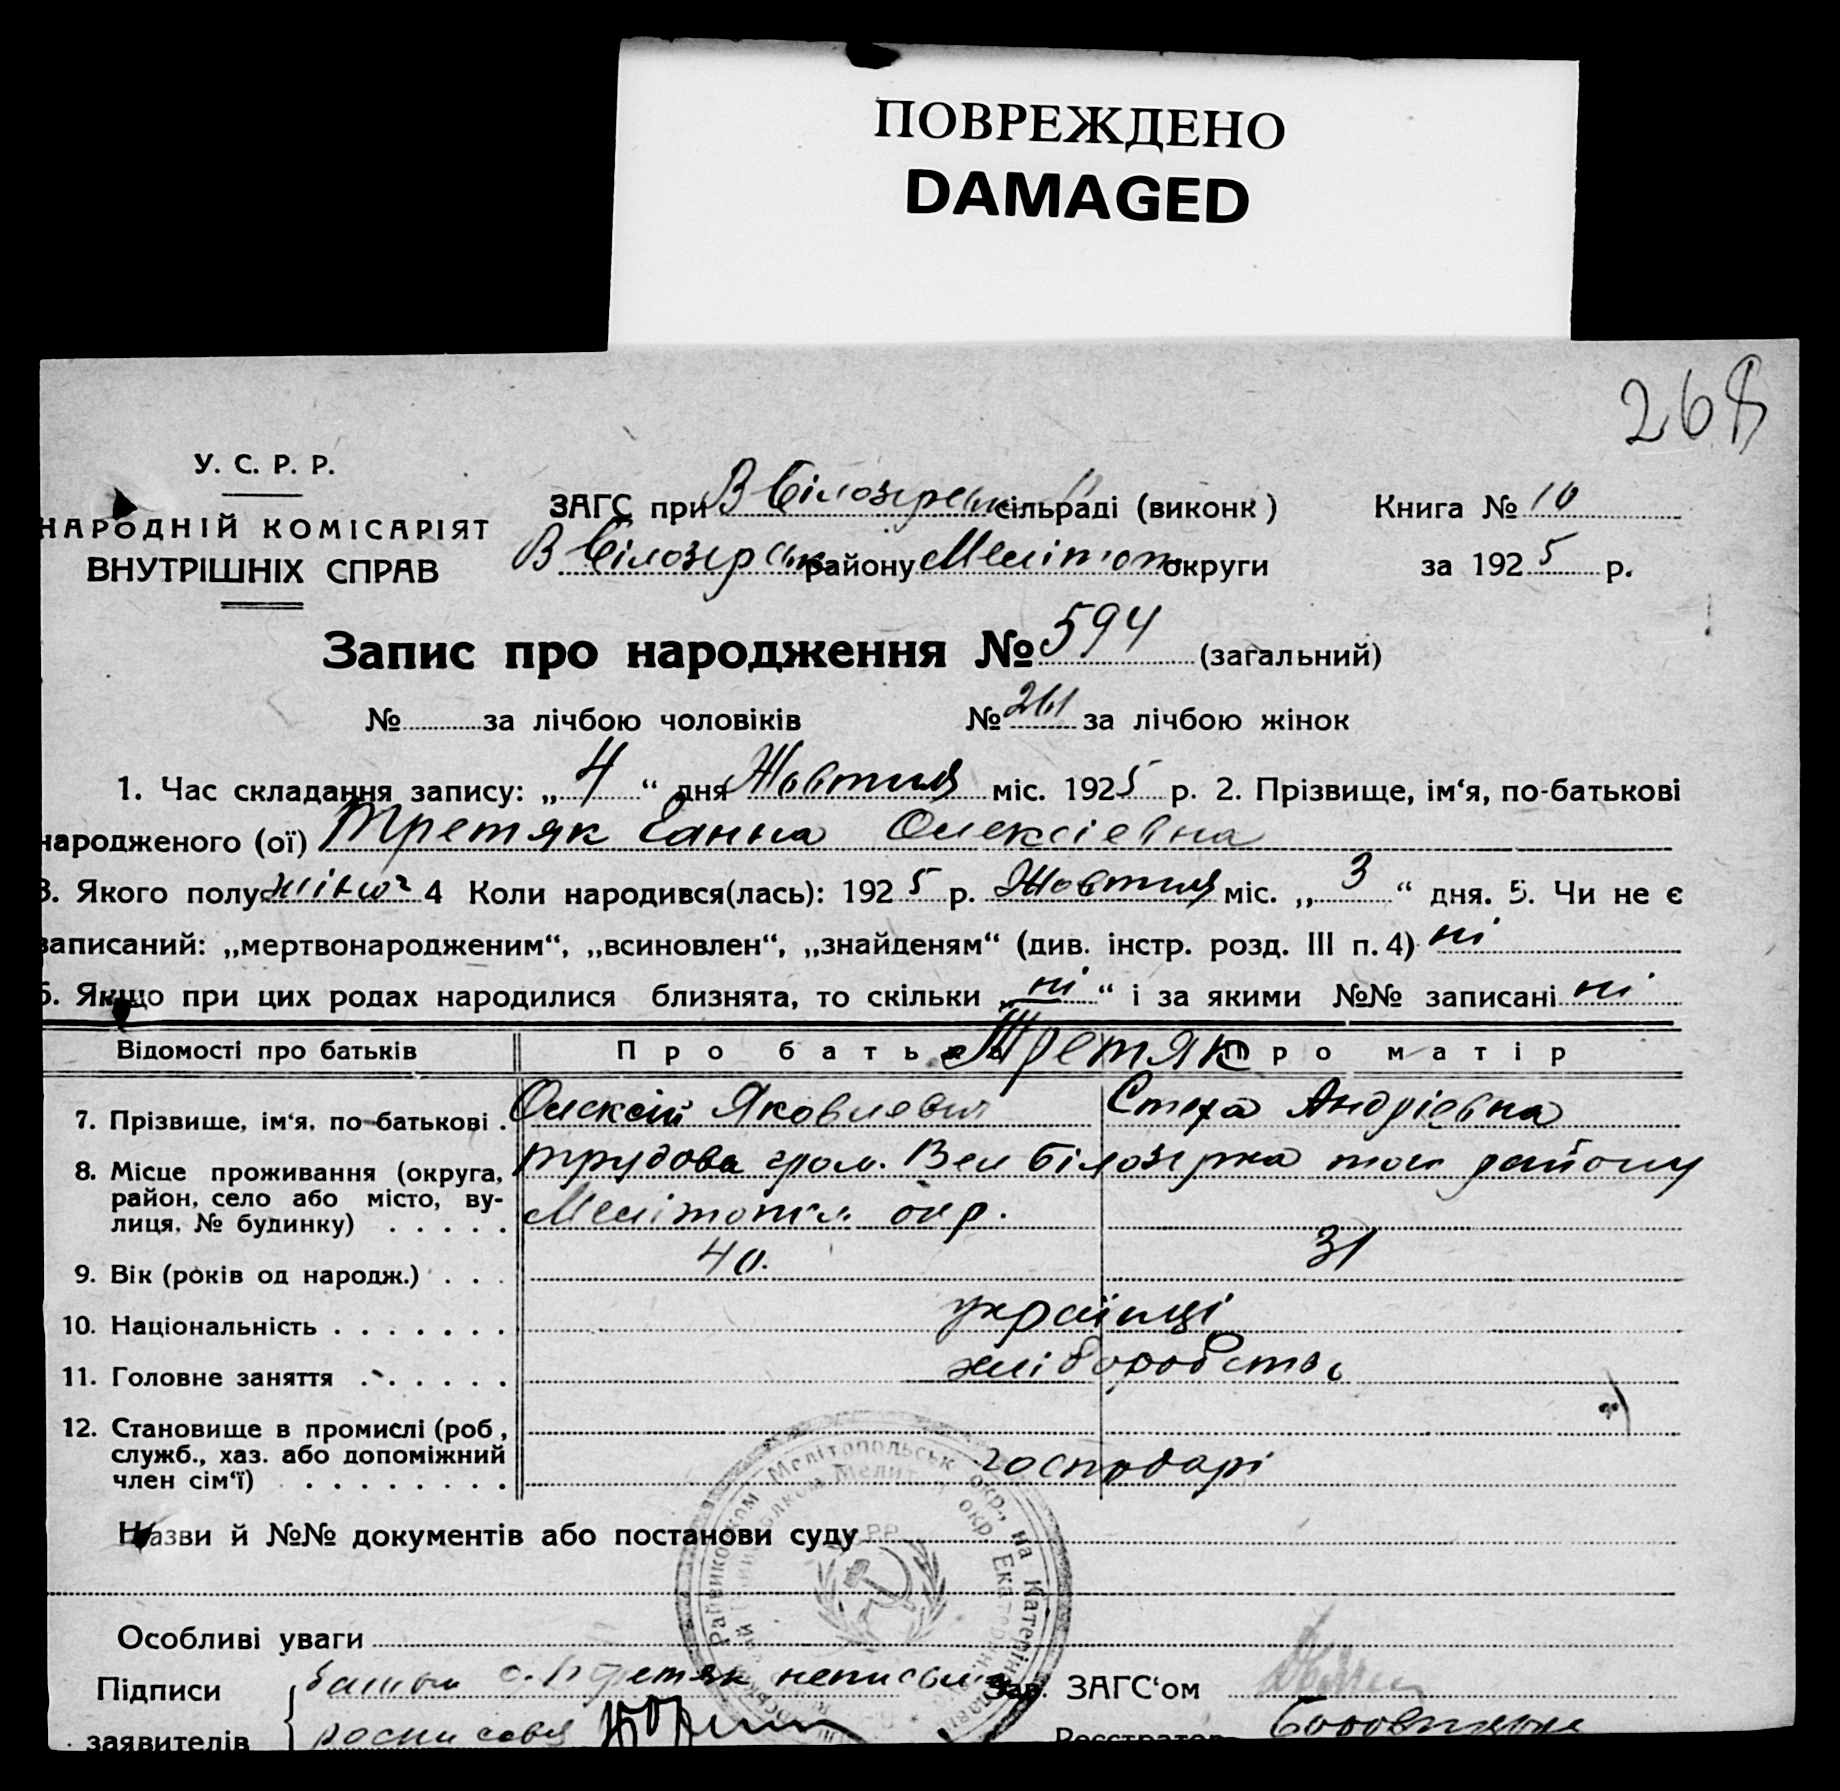 ПОВРЕЖДЕНО
DAMAGED
268
У. С. Р. Р.
НАРОДНІЙ КОМІСАРІЯТ
ВНУТРІШНІХ СПРАВ
ЗАГС при В Білозерськ сільраді (виконк) Книга № 10
В Білозерськ району Меліт'оп. округи за 1925 р.
Запис про народження № 594 (загальний)
№ за лічбою чоловіків № 261 за лічбою жінок
1. Час складання запису: „4“ дня Жовтня міс. 1925 р. 2. Прізвище, ім‘я, по-батькові
народженого (ої) Третяк Ганна Олексіевна
3. Якого полу жіноч 4 Коли народився(лась): 1925 р. Жовтня міс. „3“ дня. 5. Чи не є
записаний: „мертвонародженим“, „всиновлен“, „знайденям“ (див. інстр. розд. III п. 4) ні
6. Якщо при цих родах народилися близнята, то скільки „ні“ і за якими №№ записані ні
Відомості про батьків Про батька Третяк Про матір
7. Прізвище, ім‘я, по-батькові . Олексій Яковлевич Стеха Андріевна
8. Місце проживання (округа, трудова гром. Вел Білозерка того району
район, село або місто, ву- Мелітопіл. окр.
лиця, № будинку) . . . . .
9. Вік (років од народж.) . . . 40. 31
10. Національність . . . . . . . українці
11. Головне заняття . . . . . . хліборобство
12. Становище в промислі (роб,
служб., хаз. або допоміжний господарі
член сім‘ї) . . . . . . . .
Назви й №№ документів або постанови суду
Особливі уваги
Підписи батьки Третяк неписьм Зав. ЗАГС‘ом
заявителів Реєстратор
Мелітопольськ окр., на Катеринославщ